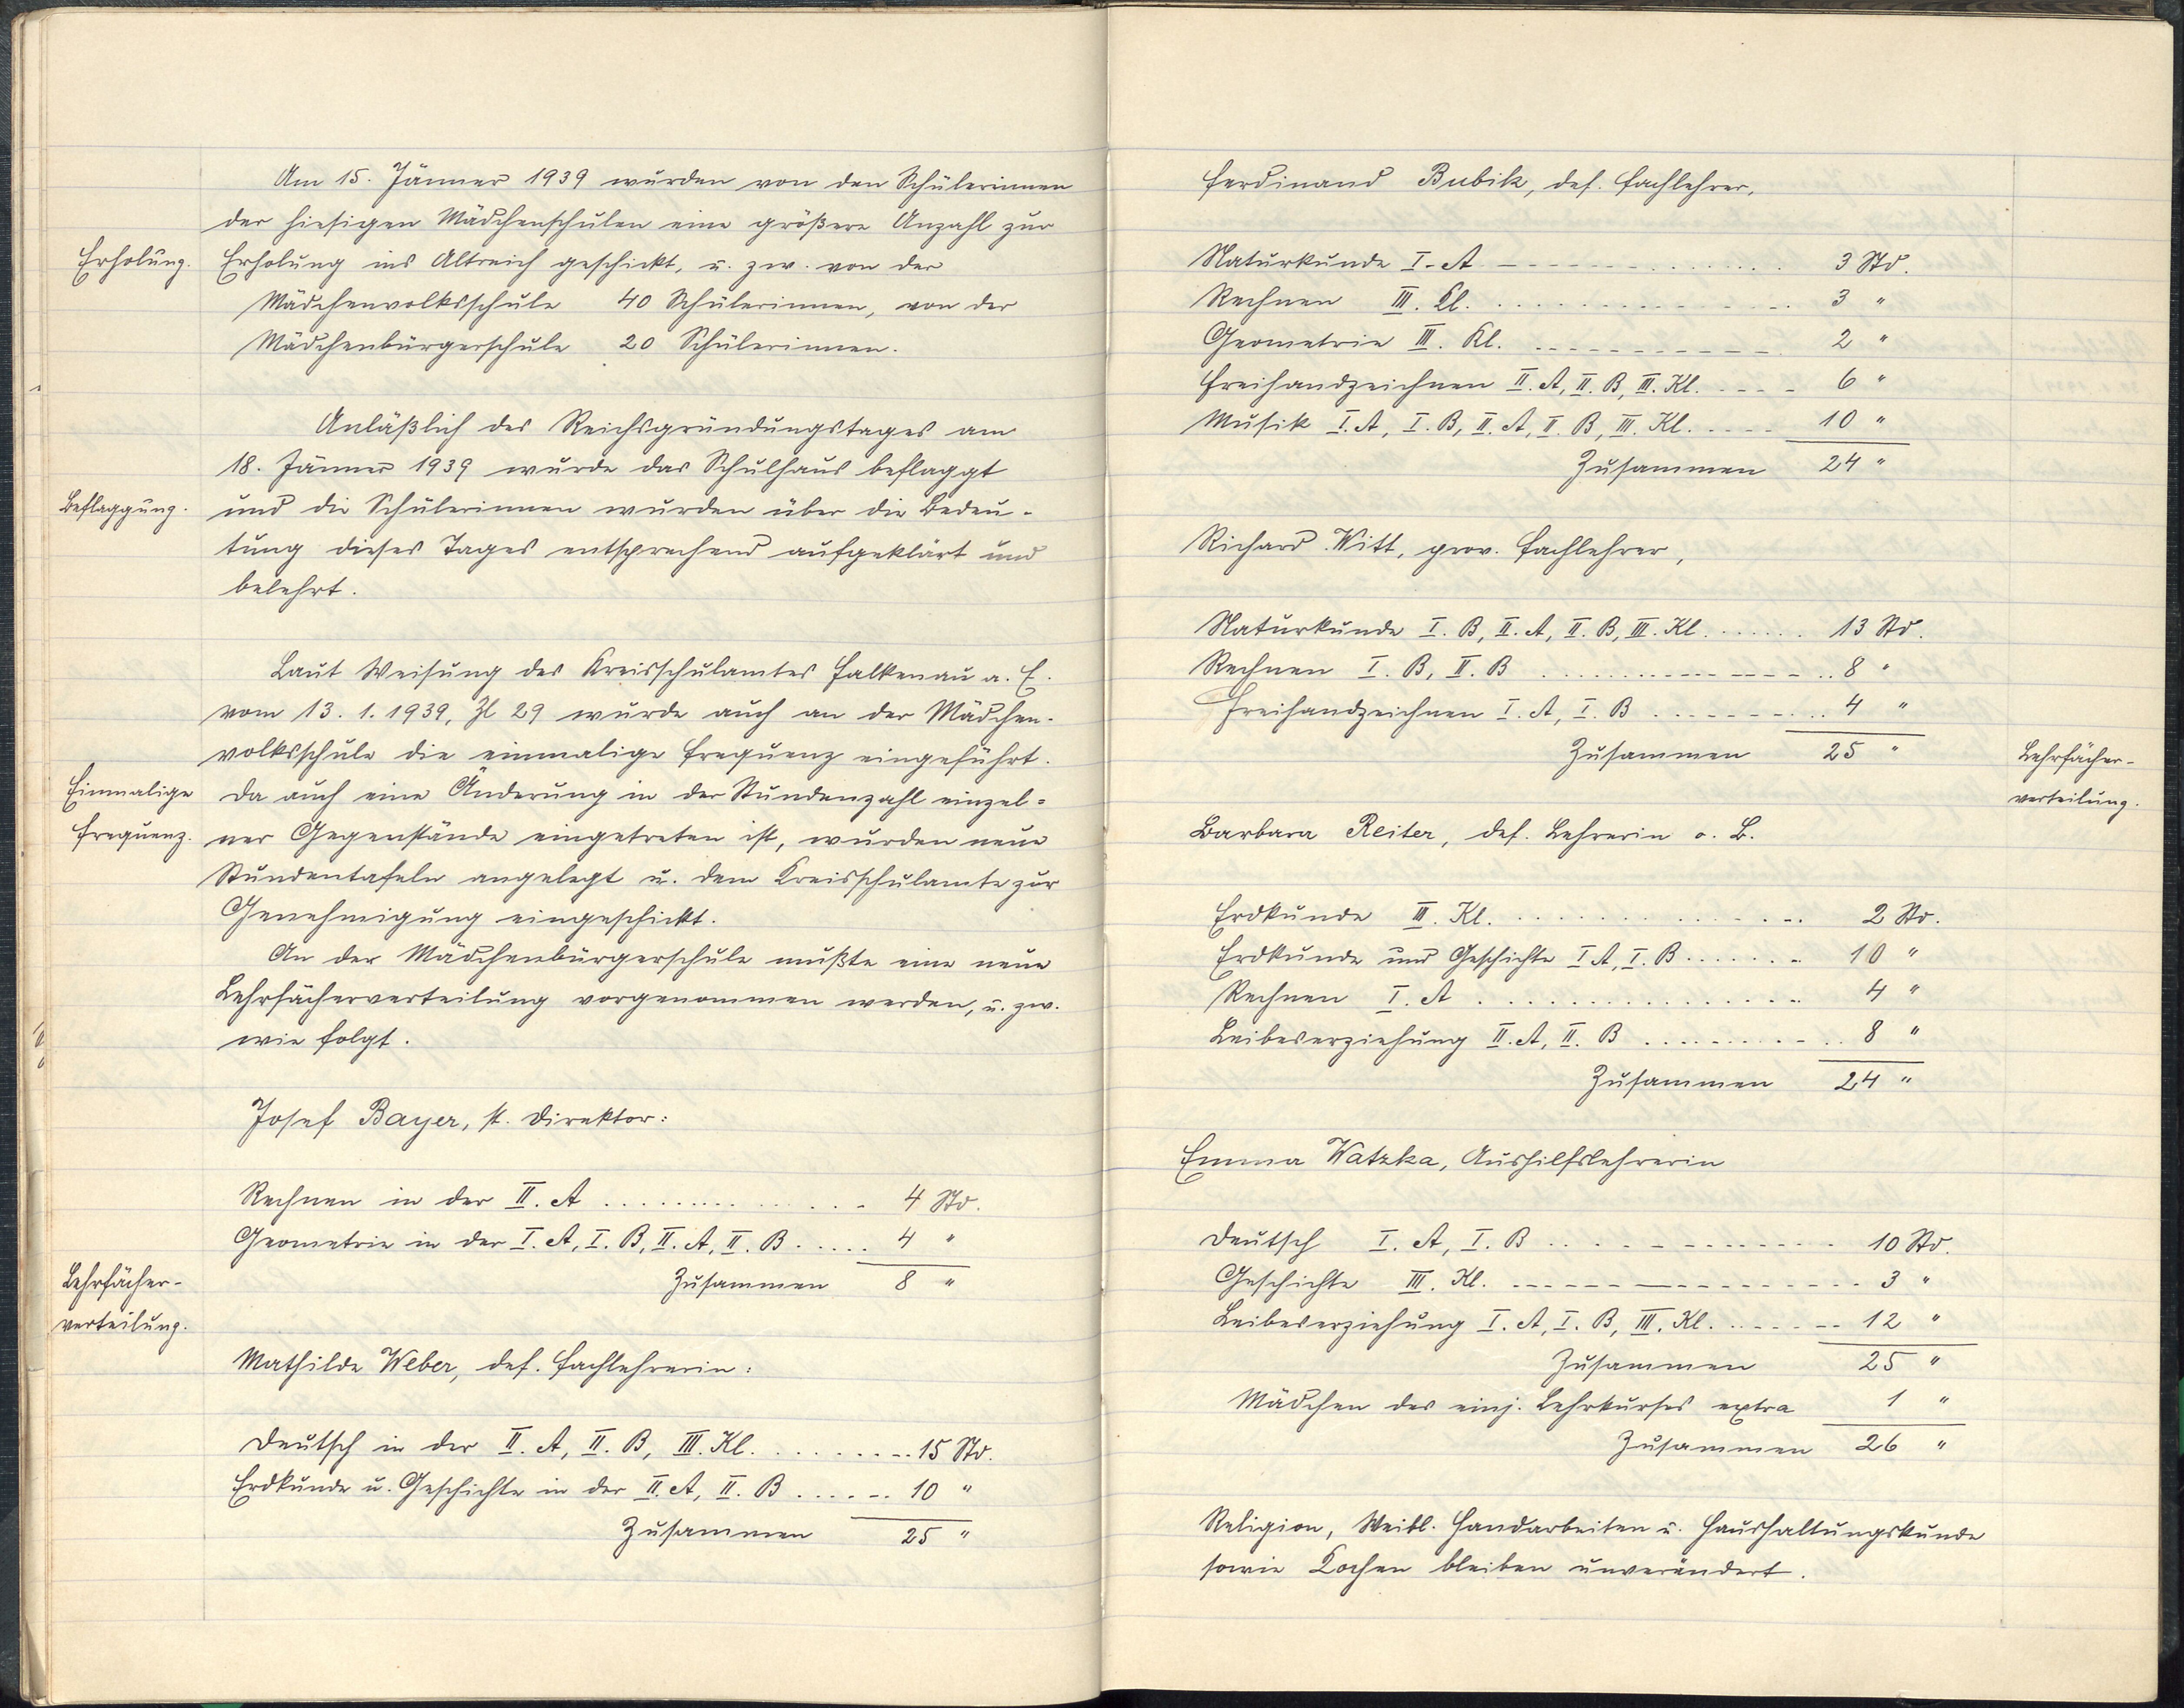 Am 15. Jänner 1939 wurden von den Schülerinnen
der hiesigen Mädchenschulen eine größere Anzahl zur
Erholung.
Erholung ins Altreich geschickt, u. zw. von der
Mädchenvolksschule 40 Schülerinnen, von der
Mädchenbürgerschule 20 Schülerinnen.
Anläßlich des Reichsgründungstages am
18. Jänner 1939 wurde das Schulhaus beflaggt
Beflaggung.
und die Schülerinnen wurden über die Bedeu-
tung dieses Tages entsprechend aufgeklärt und
belehrt.
Laut Weisung des Kreisschulamtes Falkenau a. E.
vom 13. 1. 1939, Zl 29 wurde auch an der Mädchen-
volksschule die einmalige Frequenz eingeführt.
Einmalige
Da auch eine Änderung in der Stundenzahl einzel-
Frequenz.
ner Gegenstände eingetreten ist, wurden neue
Stundentafeln angelegt u. dem Kreisschulamte zur
Genehmigung eingeschickt.
An der Mädchenbürgerschule mußte eine neue
Lehrfächerverteilung vorgenommen werden, u. zw.
wie folgt.
Josef Bayer, st. Direktor:
Rechnen in der II. A .............. 4 Std.
Geometrie in der I. A, I. B, II. A, II. B ..... 4 "
Lehrfächer-
Zusammen 8 "
verteilung.
Mathilde Weber, def. Fachlehrerin:
Deutsch in der II. A, II. B, III. Kl. ........ 15 Std.
Erdkunde u. Geschichte in der II. A, II. B ...... 10 "
Zusammen 25 "
Ferdinand Bubik, def. Fachlehrer,
Naturkunde I. A .............. 3 Std.
Rechnen III. Kl. .............. 3 "
Geometrie III. Kl. ............ 2 "
Freihandzeichnen II. A, II. B, III. Kl. .... 6 "
Musik I. A, I. B, II. A, II. B, III. Kl. .... 10 "
Zusammen 24 "
Richard Witt, prov. Fachlehrer,
Naturkunde I. B, II. A, II. B, III. Kl. ...... 13 Std.
Rechnen I. B, II. B .............. 8 "
Freihandzeichnen I. A, I. B .......... 4 "
Zusammen 25 "
Lehrfächer-
verteilung.
Barbara Reiter, def. Lehrerin o. B.
Erdkunde III. Kl. .............. 2 Std.
Erdkunde und Geschichte I. A, I. B ....... 10 "
Rechnen I. A .............. 4 "
Leibeserziehung II. A, II. B .......... 8 "
Zusammen 24 "
Emma Watzka, Aushilfslehrerin
Deutsch I. A, I. B .............. 10 Std.
Geschichte III. Kl. .............. 3 "
Leibeserziehung I. A, I. B, III. Kl. ....... 12 "
Zusammen 25 "
Mädchen des einj. Lehrkurses extra 1 "
Zusammen 26 "
Religion, Weibl. Handarbeiten u. Haushaltungskunde
sowie Kochen bleiben unverändert.